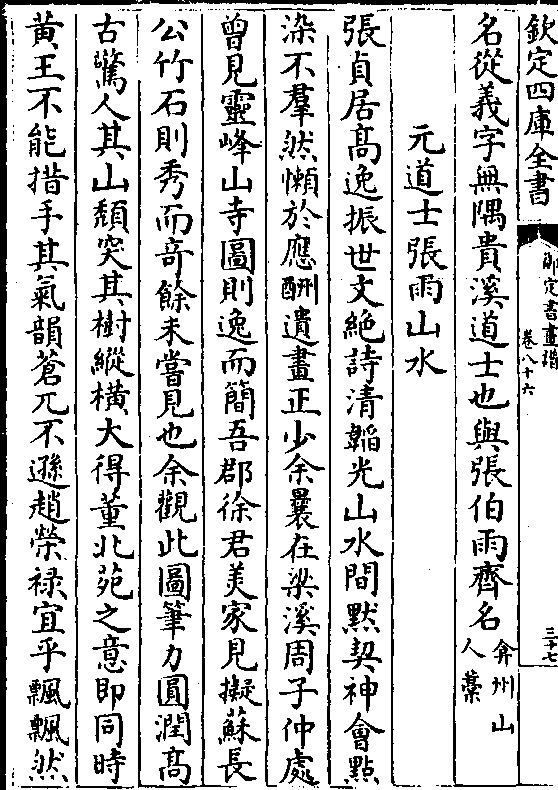 欽定四庫全書
御定書畫譜
卷八十六
三十七
名從義字無隅貴溪道士也與張伯雨齊名弇州山人藁
元道士張雨山水
張貞居髙逸振世文絶詩清韜光山水間黙契神會㸃
染不羣然懶於應酬遺畫正少余曩在梁溪周子仲處
曾見靈峰山寺圖則逸而簡吾郡徐君美家見擬蘇長
公竹石則秀而竒餘未嘗見也余觀此圖筆力圓潤髙
古驚人其山頽突其樹縱横大得董北苑之意即同時
黄王不能措手其氣韻蒼兀不遜趙榮禄宜乎飄飄然